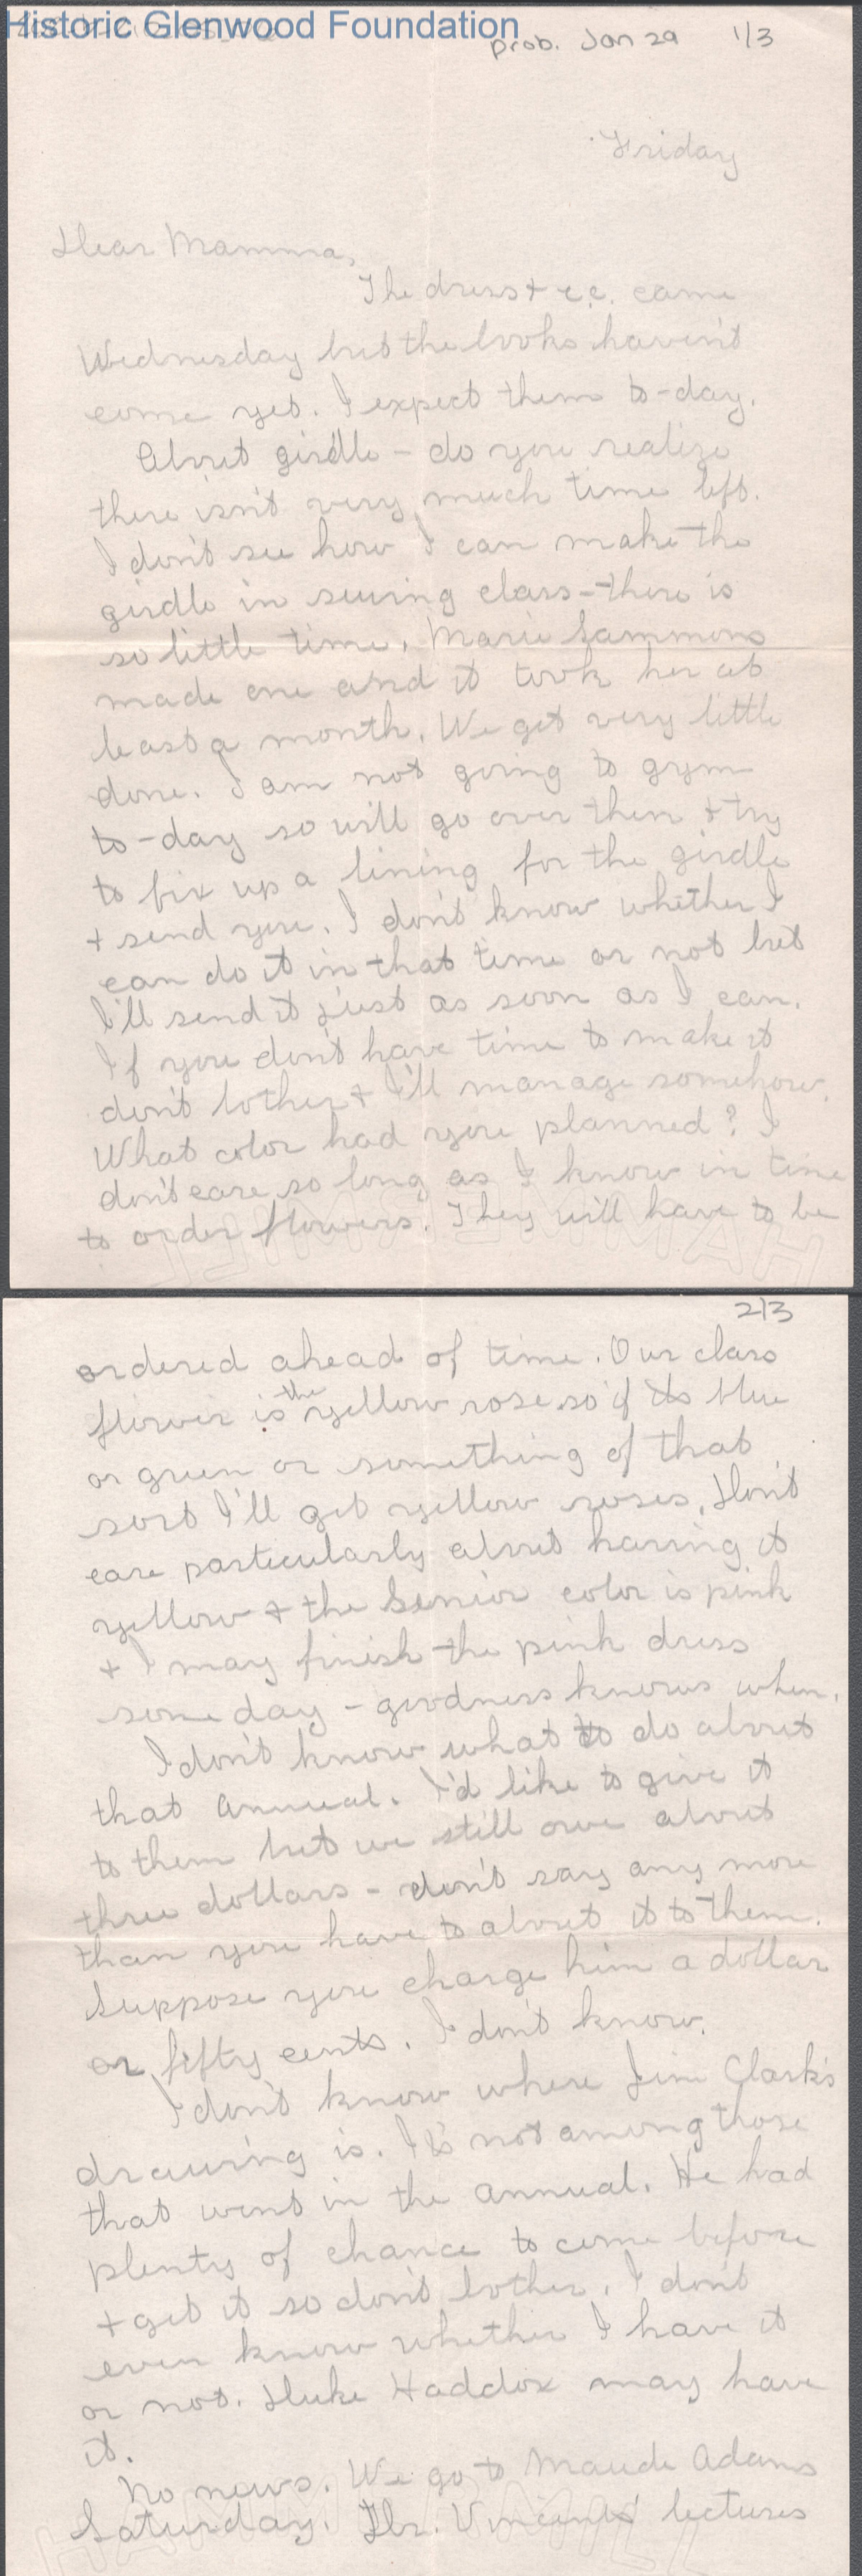 Historic Glenwood Foundation
prob. Jan 29 1/3
Friday
Dear Mamma,
The dress & c.c. came
Wednesday but the books haven't
come yet. I expect them to-day.
About girdle - do you realize
there isn't very much time left.
I don't see how I can make the
girdle in sewing class - there is
so little time. Marie Sammons
made one and it took her at
least a month. We get very little
done. I am not going to gym
to-day so will go over then & try
to fix up a lining for the girdle
& send you. I don't know whether I
can do it in that time or not but
I'll send it just as soon as I can.
If you don't have time to make it
don't bother & I'll manage somehow.
What color had you planned? I
don't care so long as I know in time
to order flowers. They will have to be
HAMMERMILL
2/3
ordered ahead of time. Our class
flower is the yellow rose so if its blue
or green or something of that
sort I'll get yellow roses. Don't
care particularly about having it
yellow & the Senior color is pink
& I may finish the pink dress
some day - goodness knows when.
I don't know what to do about
that annual. I'd like to give it
to them but we still owe about
three dollars - don't say any more
than you have to about it to them.
Suppose you charge him a dollar
or fifty cents. I don't know.
I don't know where Jim Clark's
drawing is. It's not among those
that went in the annual. He had
plenty of chance to come before
& get it so don't bother. I don't
even know whether I have it
or not. Duke Haddox may have
it.
No news. We go to Maude Adams
Saturday. Dr. Vincent's lectures
HAMMERMILL